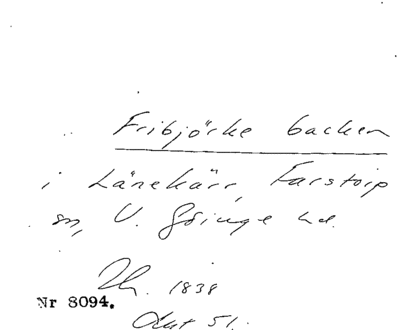 Fribjörke backen
i Lånekärr, Farstorp
sn, V. Göinge hd.
Th. 1838
Nr 8094.
dat 51.